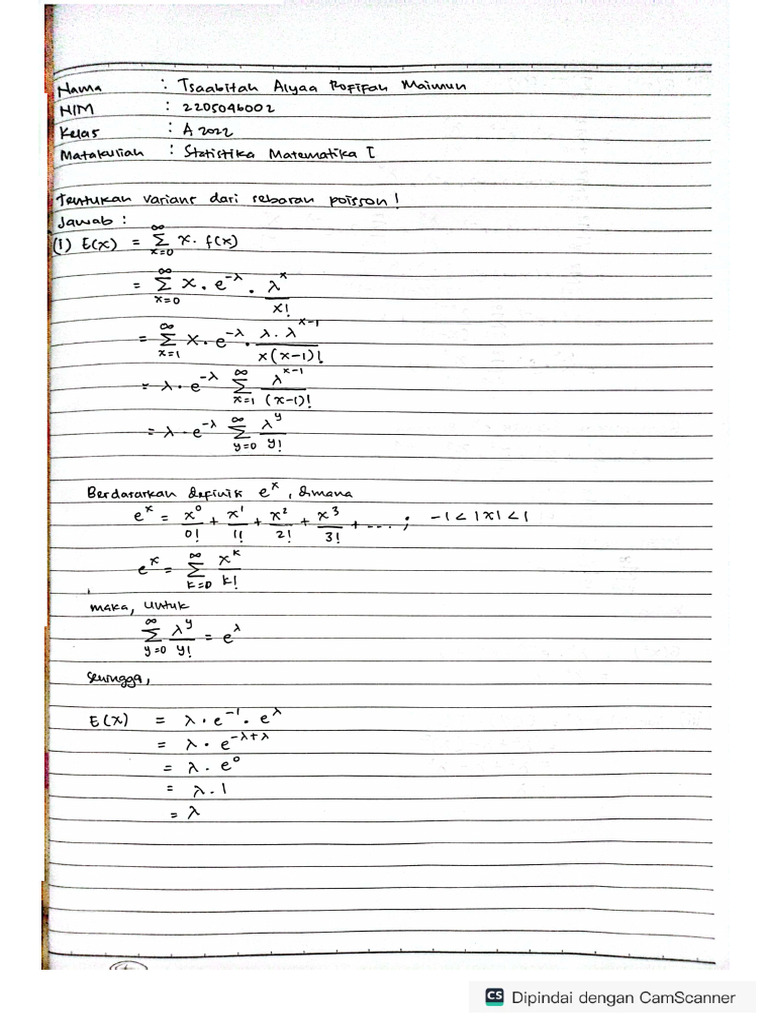 Nama : Tsaabitah Alyaa Rofifah Maimun
NIM : 2205046002
Kelas : A 2022
Matakuliah : Statistika Matematika I
Tentukan varians dari sebaran poisson!
Jawab :
(1) E(x) = ∑_{x=0}^{∞} x . f(x)
= ∑_{x=0}^{∞} x . e^{-λ} . λ^x / x!
= ∑_{x=1}^{∞} x . e^{-λ} . λ.λ^{x-1} / x(x-1)!
= λ . e^{-λ} ∑_{x=1}^{∞} λ^{x-1} / (x-1)!
= λ . e^{-λ} ∑_{y=0}^{∞} λ^y / y!
Berdasarkan definisi e^x, dimana
e^x = x^0/0! + x^1/1! + x^2/2! + x^3/3! + .... ; -1 < |x| < 1
e^x = ∑_{k=0}^{∞} x^k / k!
maka, untuk
∑_{y=0}^{∞} λ^y / y! = e^λ
sehingga,
E(x) = λ . e^{-1} . e^λ
= λ . e^{-λ+λ}
= λ . e^0
= λ . 1
= λ
CS Dipindai dengan CamScanner